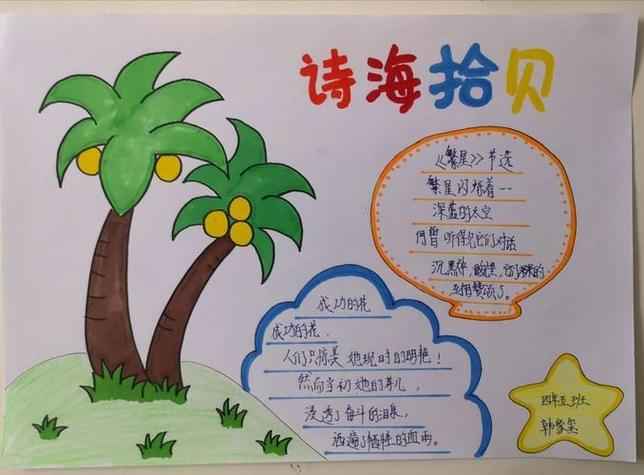 诗海拾贝
《繁星》节选
繁星闪烁着——
深蓝的太空
何曾听得见它们对话
沉默中,微光里,它们深深的
互相赞颂了。
成功的花
成功的花,
人们只惊美她现时的明艳!
然而当初她的芽儿,
浸透了奋斗的泪泉,
洒遍了牺牲的血雨。
四年五班